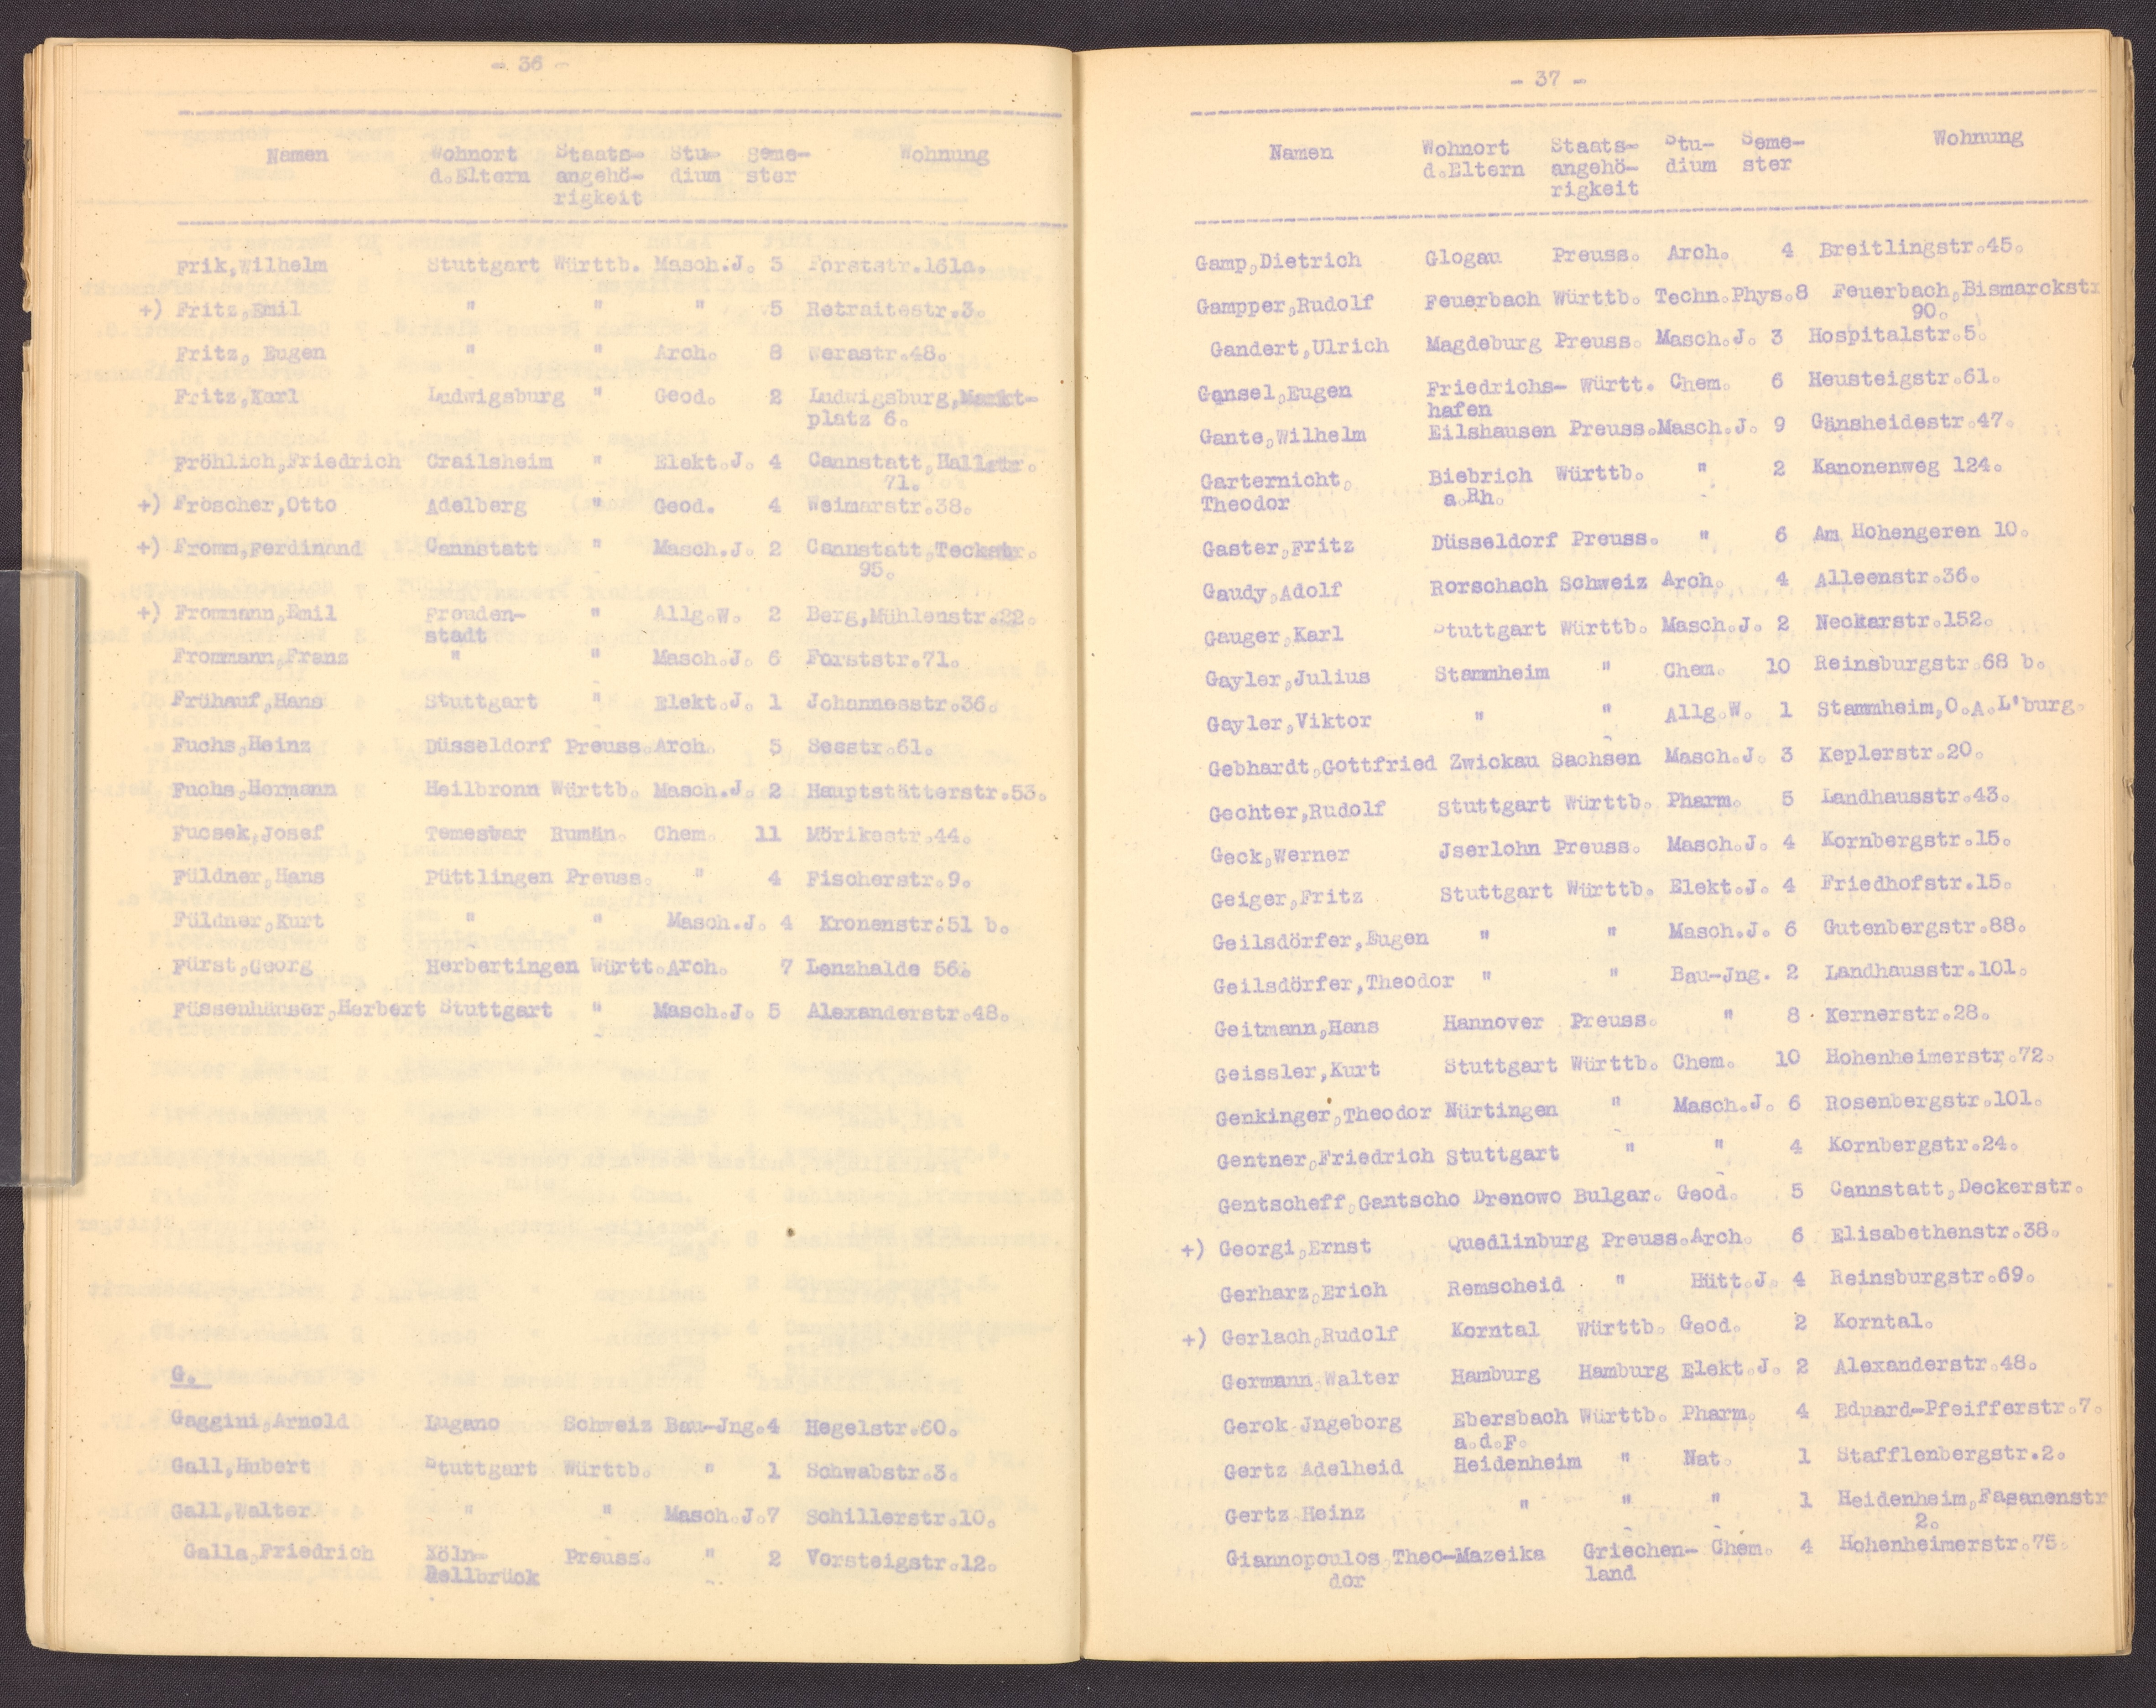 - 36 -
Namen Wohnort Staats- Stu- Seme- Wohnung
d.Eltern angehö- dium ster
rigkeit
Frik,Wilhelm Stuttgart Württb. Masch.J. 5 Forststr.161a.
+) Fritz,Emil " " " 5 Retraitestr.3.
Fritz, Eugen " " Arch. 8 Werastr.48.
Fritz,Karl Ludwigsburg " Geod. 2 Ludwigsburg,Markt-
platz 6.
Fröhlich,Friedrich Crailsheim " Elekt.J. 4 Cannstatt,Hallstr.
71.
+) Fröscher,Otto Adelberg " Geod. 4 Weimarstr.38.
+) Fromm,Ferdinand Cannstatt " Masch.J. 2 Cannstatt,Teckstr.
95.
+) Frommann,Emil Freuden- " Allg.W. 2 Berg,Mühlenstr.22.
stadt
Frommann,Franz " " Masch.J. 6 Forststr.71.
Frühauf,Hans Stuttgart " Elekt.J. 1 Johannesstr.36.
Fuchs,Heinz Düsseldorf Preuss.Arch. 5 Seestr.61.
Fuchs,Hermann Heilbronn Württb. Masch.J. 2 Hauptstätterstr.53.
Fucsek,Josef Temeswar Rumän. Chem. 11 Mörikestr.44.
Füldner,Hans Püttlingen Preuss. " 4 Fischerstr.9.
Füldner,Kurt " " Masch.J. 4 Kronenstr.51 b.
Fürst,Georg Herbertingen Württ.Arch. 7 Lenzhalde 56.
Füssenhäuser,Herbert Stuttgart " Masch.J. 5 Alexanderstr.48.
G.
Gaggini,Arnold Lugano Schweiz Bau-Jng.4 Hegelstr.60.
Gall,Hubert Stuttgart Württb. " 1 Schwabstr.3.
Gall,Walter " " Masch.J.7 Schillerstr.10.
Galla,Friedrich Köln- Preuss. " 2 Vorsteigstr.12.
Dellbrück
- 37 -
Namen Wohnort Staats- Stu- Seme- Wohnung
d.Eltern angehö- dium ster
rigkeit
Gamp,Dietrich Glogau Preuss. Arch. 4 Breitlingstr.45.
Gampper,Rudolf Feuerbach Württb. Techn.Phys.8 Feuerbach,Bismarckstr
90.
Gandert,Ulrich Magdeburg Preuss. Masch.J. 3 Hospitalstr.5.
Gansel,Eugen Friedrichs- Württ. Chem. 6 Heusteigstr.61.
hafen
Gante,Wilhelm Eilshausen Preuss.Masch.J. 9 Gänsheidestr.47.
Garternicht, Biebrich Württb. " 2 Kanonenweg 124.
Theodor a.Rh.
Gaster,Fritz Düsseldorf Preuss. " 6 Am Hohengeren 10.
Gaudy,Adolf Rorschach Schweiz Arch. 4 Alleenstr.36.
Gauger,Karl Stuttgart Württb. Masch.J. 2 Neckarstr.152.
Gayler,Julius Stammheim " Chem. 10 Reinsburgstr.68 b.
Gayler,Viktor " " Allg.W. 1 Stammheim,O.A.L'burg.
Gebhardt,Gottfried Zwickau Sachsen Masch.J. 3 Keplerstr.20.
Gechter,Rudolf Stuttgart Württb. Pharm. 5 Landhausstr.43.
Geck,Werner Jserlohn Preuss. Masch.J. 4 Kornbergstr.15.
Geiger,Fritz Stuttgart Württb. Elekt.J. 4 Friedhofstr.15.
Geilsdörfer,Eugen " " Masch.J. 6 Gutenbergstr.88.
Geilsdörfer,Theodor " " Bau-Jng. 2 Landhausstr.101.
Geitmann,Hans Hannover Preuss. " 8 Kernerstr.28.
Geissler,Kurt Stuttgart Württb. Chem. 10 Hohenheimerstr.72.
Genkinger,Theodor Nürtingen " Masch.J. 6 Rosenbergstr.101.
Gentner,Friedrich Stuttgart " " 4 Kornbergstr.24.
Gentscheff,Gantscho Drenowo Bulgar. Geod. 5 Cannstatt,Deckerstr.
+) Georgi,Ernst Quedlinburg Preuss.Arch. 6 Elisabethenstr.38.
Gerharz,Erich Remscheid " Hütt.J. 4 Reinsburgstr.69.
+) Gerlach,Rudolf Korntal Württb. Geod. 2 Korntal.
Germann,Walter Hamburg Hamburg Elekt.J. 2 Alexanderstr.48.
Gerok Jngeborg Ebersbach Württb. Pharm. 4 Eduard-Pfeifferstr.7.
a.d.F.
Gertz Adelheid Heidenheim " Nat. 1 Stafflenbergstr.2.
Gertz Heinz " " " 1 Heidenheim,Fasanenstr
2.
Giannopoulos Theo-Mazeika Griechen- Chem. 4 Hohenheimerstr.75.
dor land